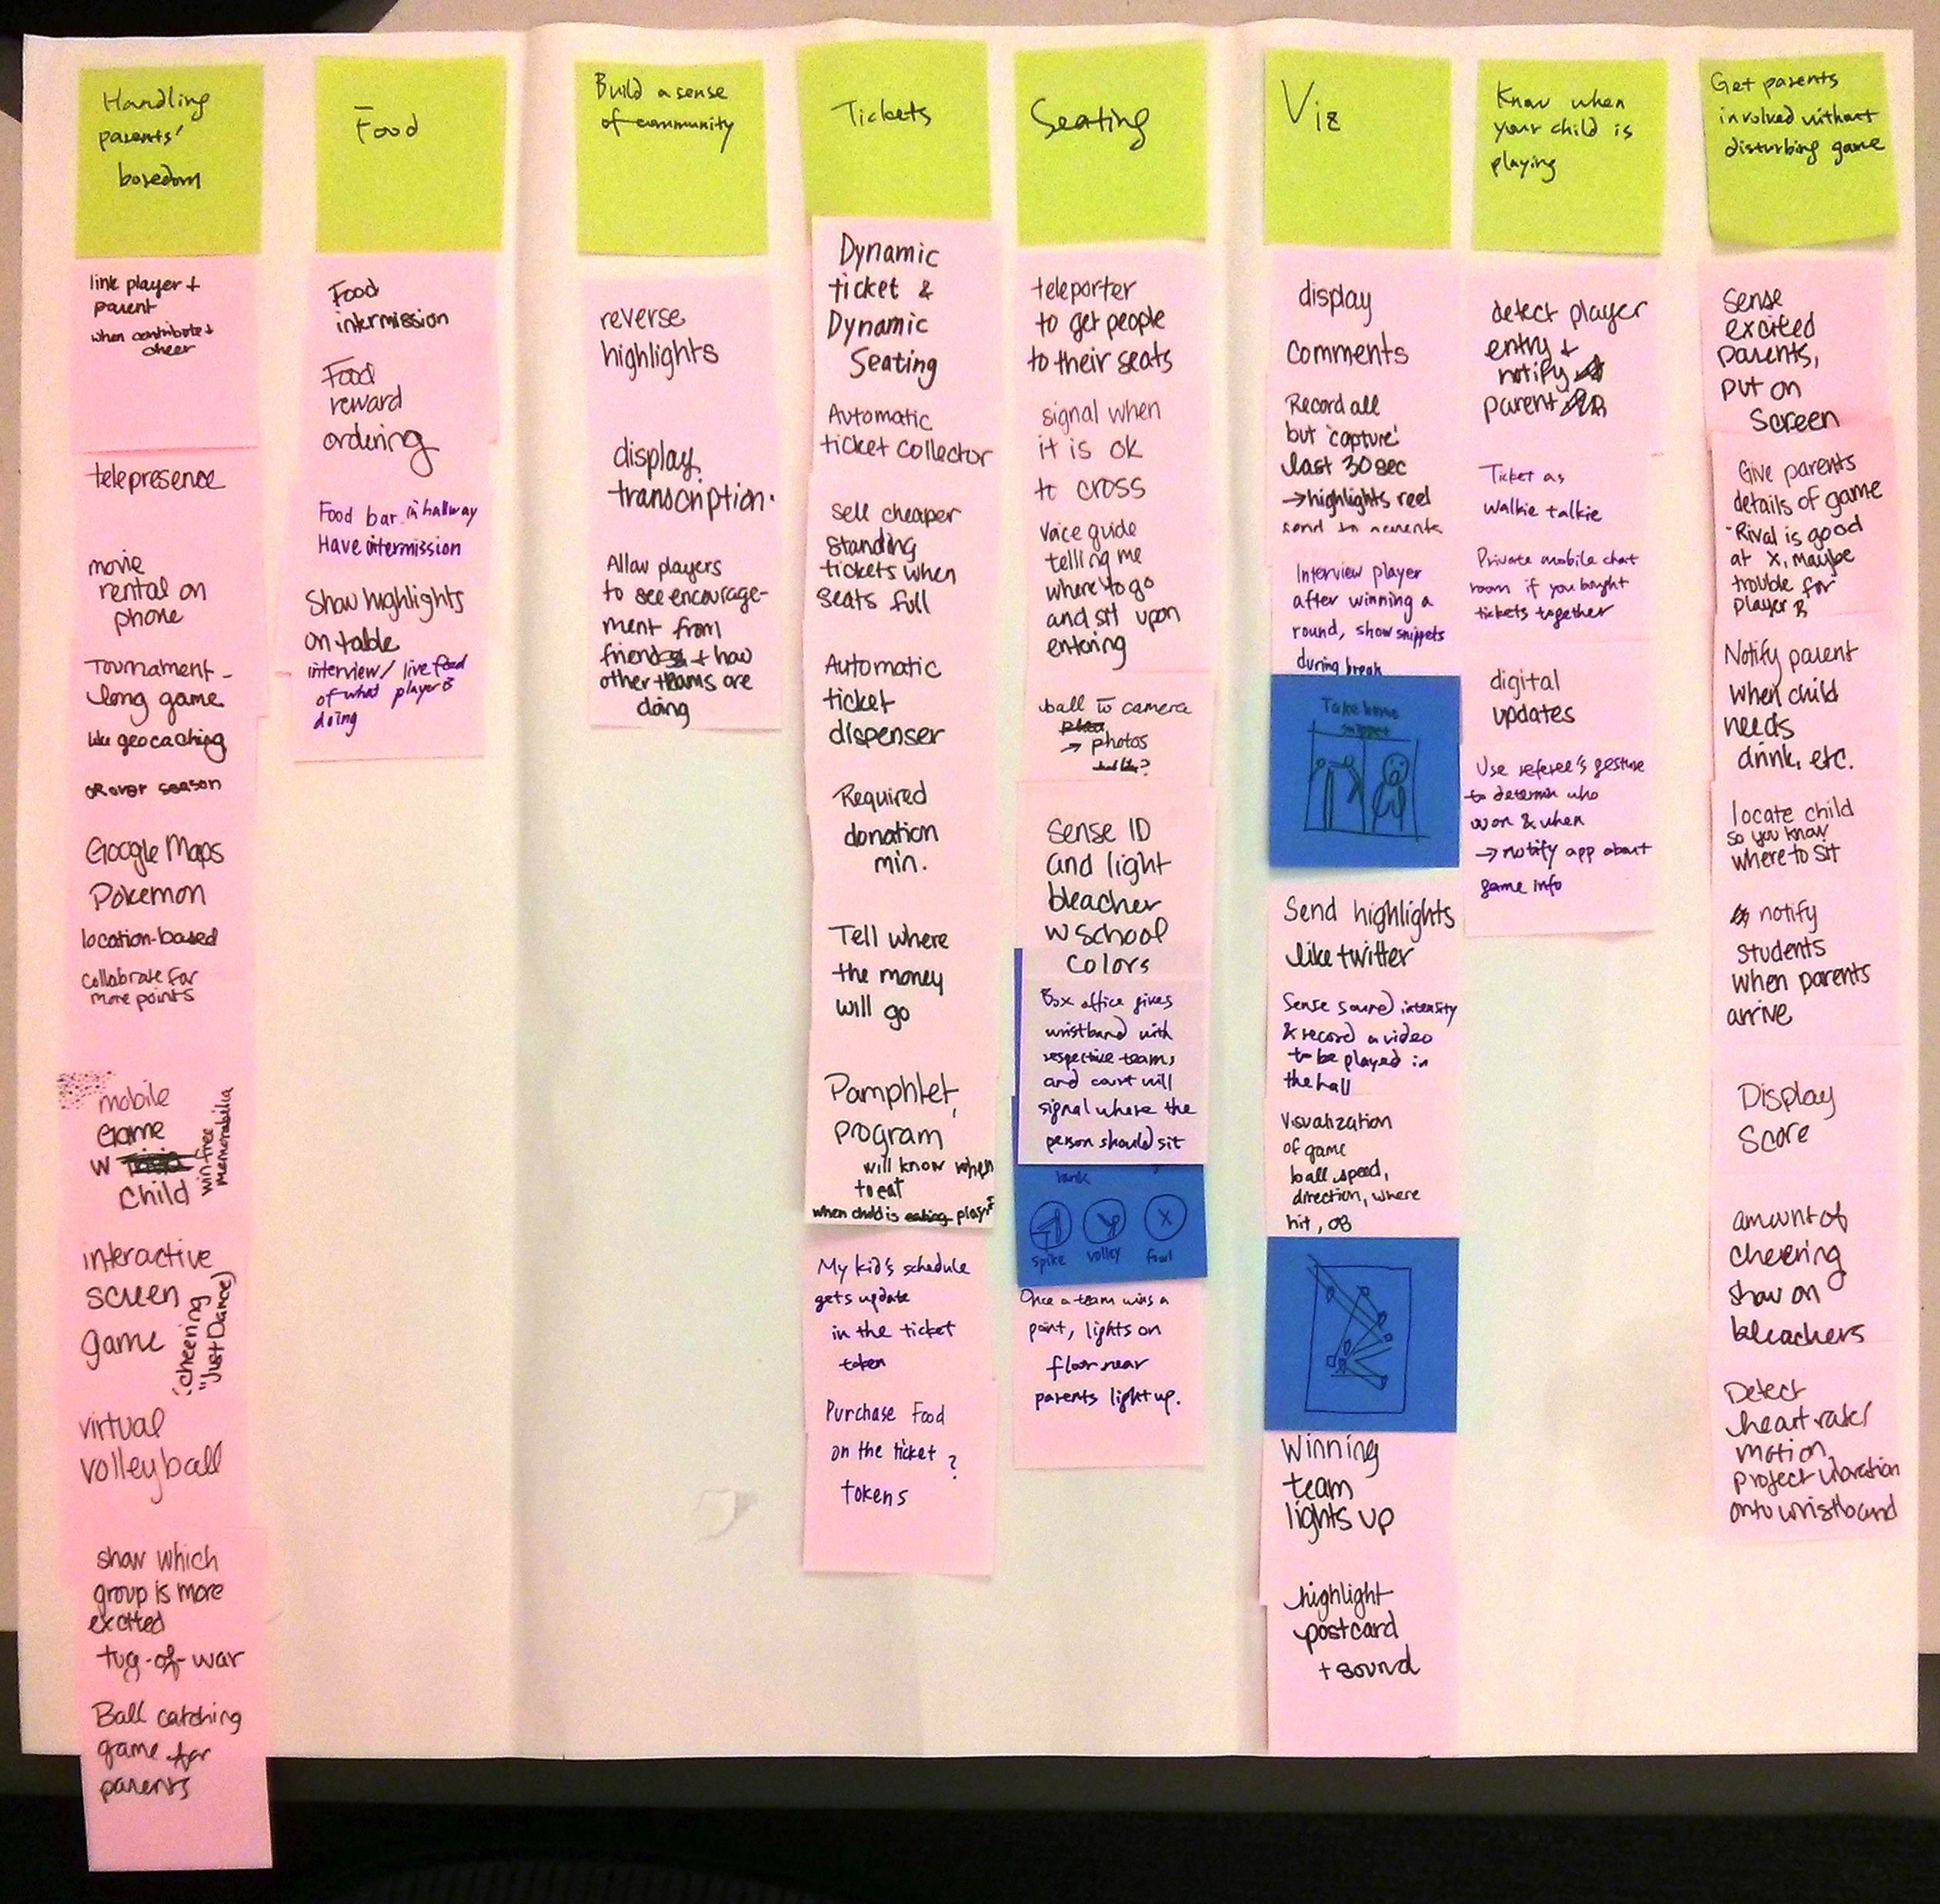 Handling
parents'
boredom
link player +
parent
when contribute +
cheer
telepresence
movie
rental on
phone
Tournament -
long game
like geocaching
OR over season
Google Maps
Pokemon
location-based
collabrate for
more points
mobile
Game
w
child
win free
memorabilia
interactive
screen
game
(cheering
"Just Dance)
virtual
volleyball
show which
group is more
excited
tug-of-war
Ball catching
game for
parents
Food
Food
intermission
Food
reward
ordering
Food bar in hallway
Have intermission
Show highlights
on table
interview/ live feed
of what player is
doing
Build a sense
of community
reverse
highlights
display
transcription.
Allow players
to see encourage-
ment from
friends + how
other teams are
doing
Tickets
Dynamic
ticket &
Dynamic
Seating
Automatic
ticket collector
sell cheaper
standing
tickets when
seats full
Automatic
ticket
dispenser
Required
donation
min.
Tell where
the money
will go
Pamphlet,
program
will know when
to eat
when child is eating
My kid's schedule
gets update
in the ticket
token
Purchase Food
on the ticket ?
tokens
Seating
teleporter
to get people
to their seats
signal when
it is ok
to cross
Voice guide
telling me
where to go
and sit upon
entering
ball to camera
→ photos
Sense ID
and light
bleacher
w school
colors
Box office gives
wristband with
respective teams,
and court will
signal where the
person should sit
spike
volley
foul
Once a team wins a
point, lights on
floor near
parents light up.
Viz
display
comments
Record all
but 'capture'
last 30 sec
→ highlights reel
Interview player
after winning a
round, show snippets
during break
Take home
snippet
Send highlights
like twitter
Sense sound intensity
& record a video
to be played in
the hall
Visualization
of game
ball speed,
direction, where
hit, OB
Winning
team
lights up
highlight
postcard
+ sound
Know when
your child is
playing
detect player
entry +
notify
parent
Ticket as
walkie talkie
Private mobile chat
room if you bought
tickets together
digital
updates
Use referee's gesture
to determin who
won & when
→ notify app about
game info
Get parents
involved without
disturbing game
Sense
excited
parents,
put on
screen
Give parents
details of game
"Rival is good
at X, maybe
trouble for
player B
Notify parent
when child
needs
drink, etc.
locate child
so you know
where to sit
notify
students
when parents
arrive
Display
Score
amount of
cheering
show on
bleachers
Detect
heart rate/
motion
project vibration
onto wristband